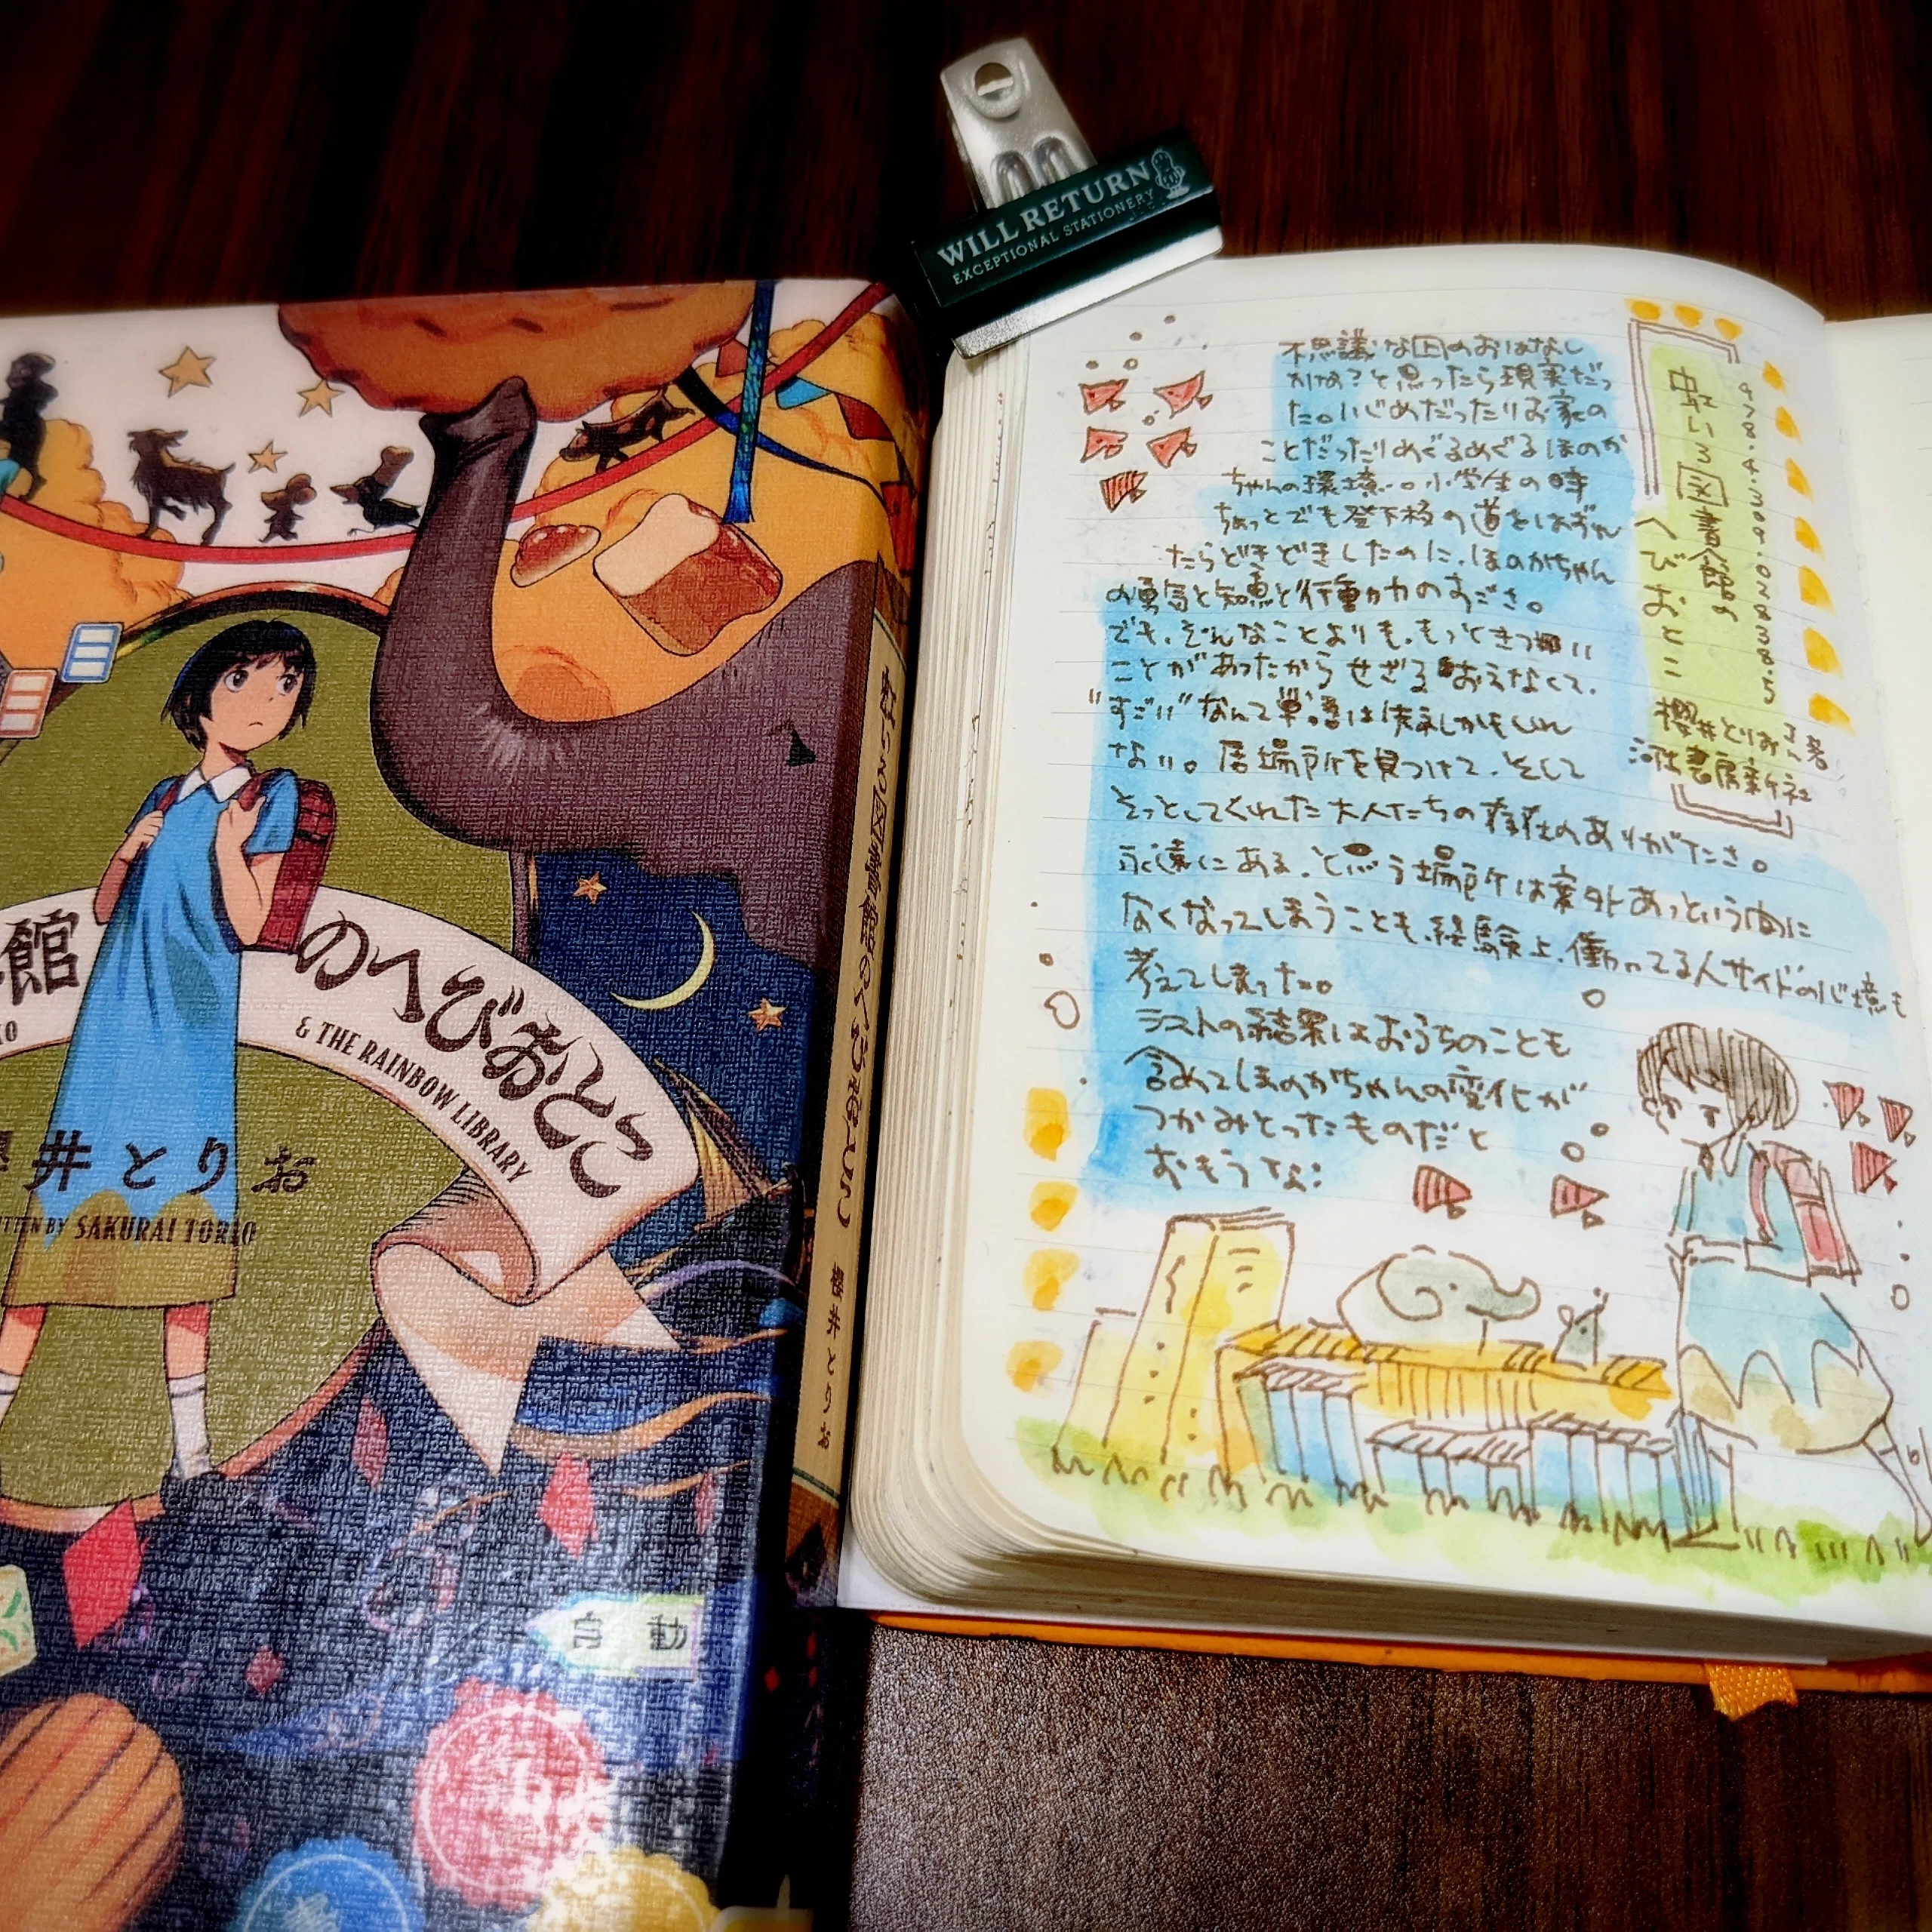 WILL RETURN
EXCEPTIONAL STATIONERY
館
のへびおとこ
& THE RAINBOW LIBRARY
井とりお
BY SAKURAI TORIO
図書館のへびおとこ
櫻井とりお
自動
不思議な国のおはなし
かな?と思ったら現実だっ
た。いじめだったりお家の
ことだったりめぐるめぐるほのか
ちゃんの環境。小学生の時
ちょっとでも登下校の道をはずれ
たらどきどきしたのに、ほのかちゃん
の勇気と知恵と行動力のすごさ。
でも、そんなことよりも、もっときつい
ことがあったからせざるおえなくて、
"すごい"なんて単語は失礼かもしれ
ない。居場所を見つけて、そして
そっとしてくれた大人たちの存在のありがたさ。
永遠にある、と思う場所は案外あっという間に
なくなってしまうことも、経験上、働いてる人サイドの心境も
考えてしまった。
ラストの結果はおうちのことも
含めてほのかちゃんの変化が
つかみとったものだと
おもうな:
978.4.309.02838.5
虹いろ図書館の
へびおとこ
櫻井とりおさん著
河出書房新社